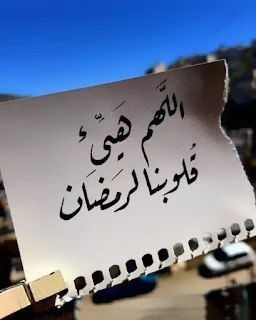 اللَّهم هَيِّئ
قُلوبنا لرمَضَان